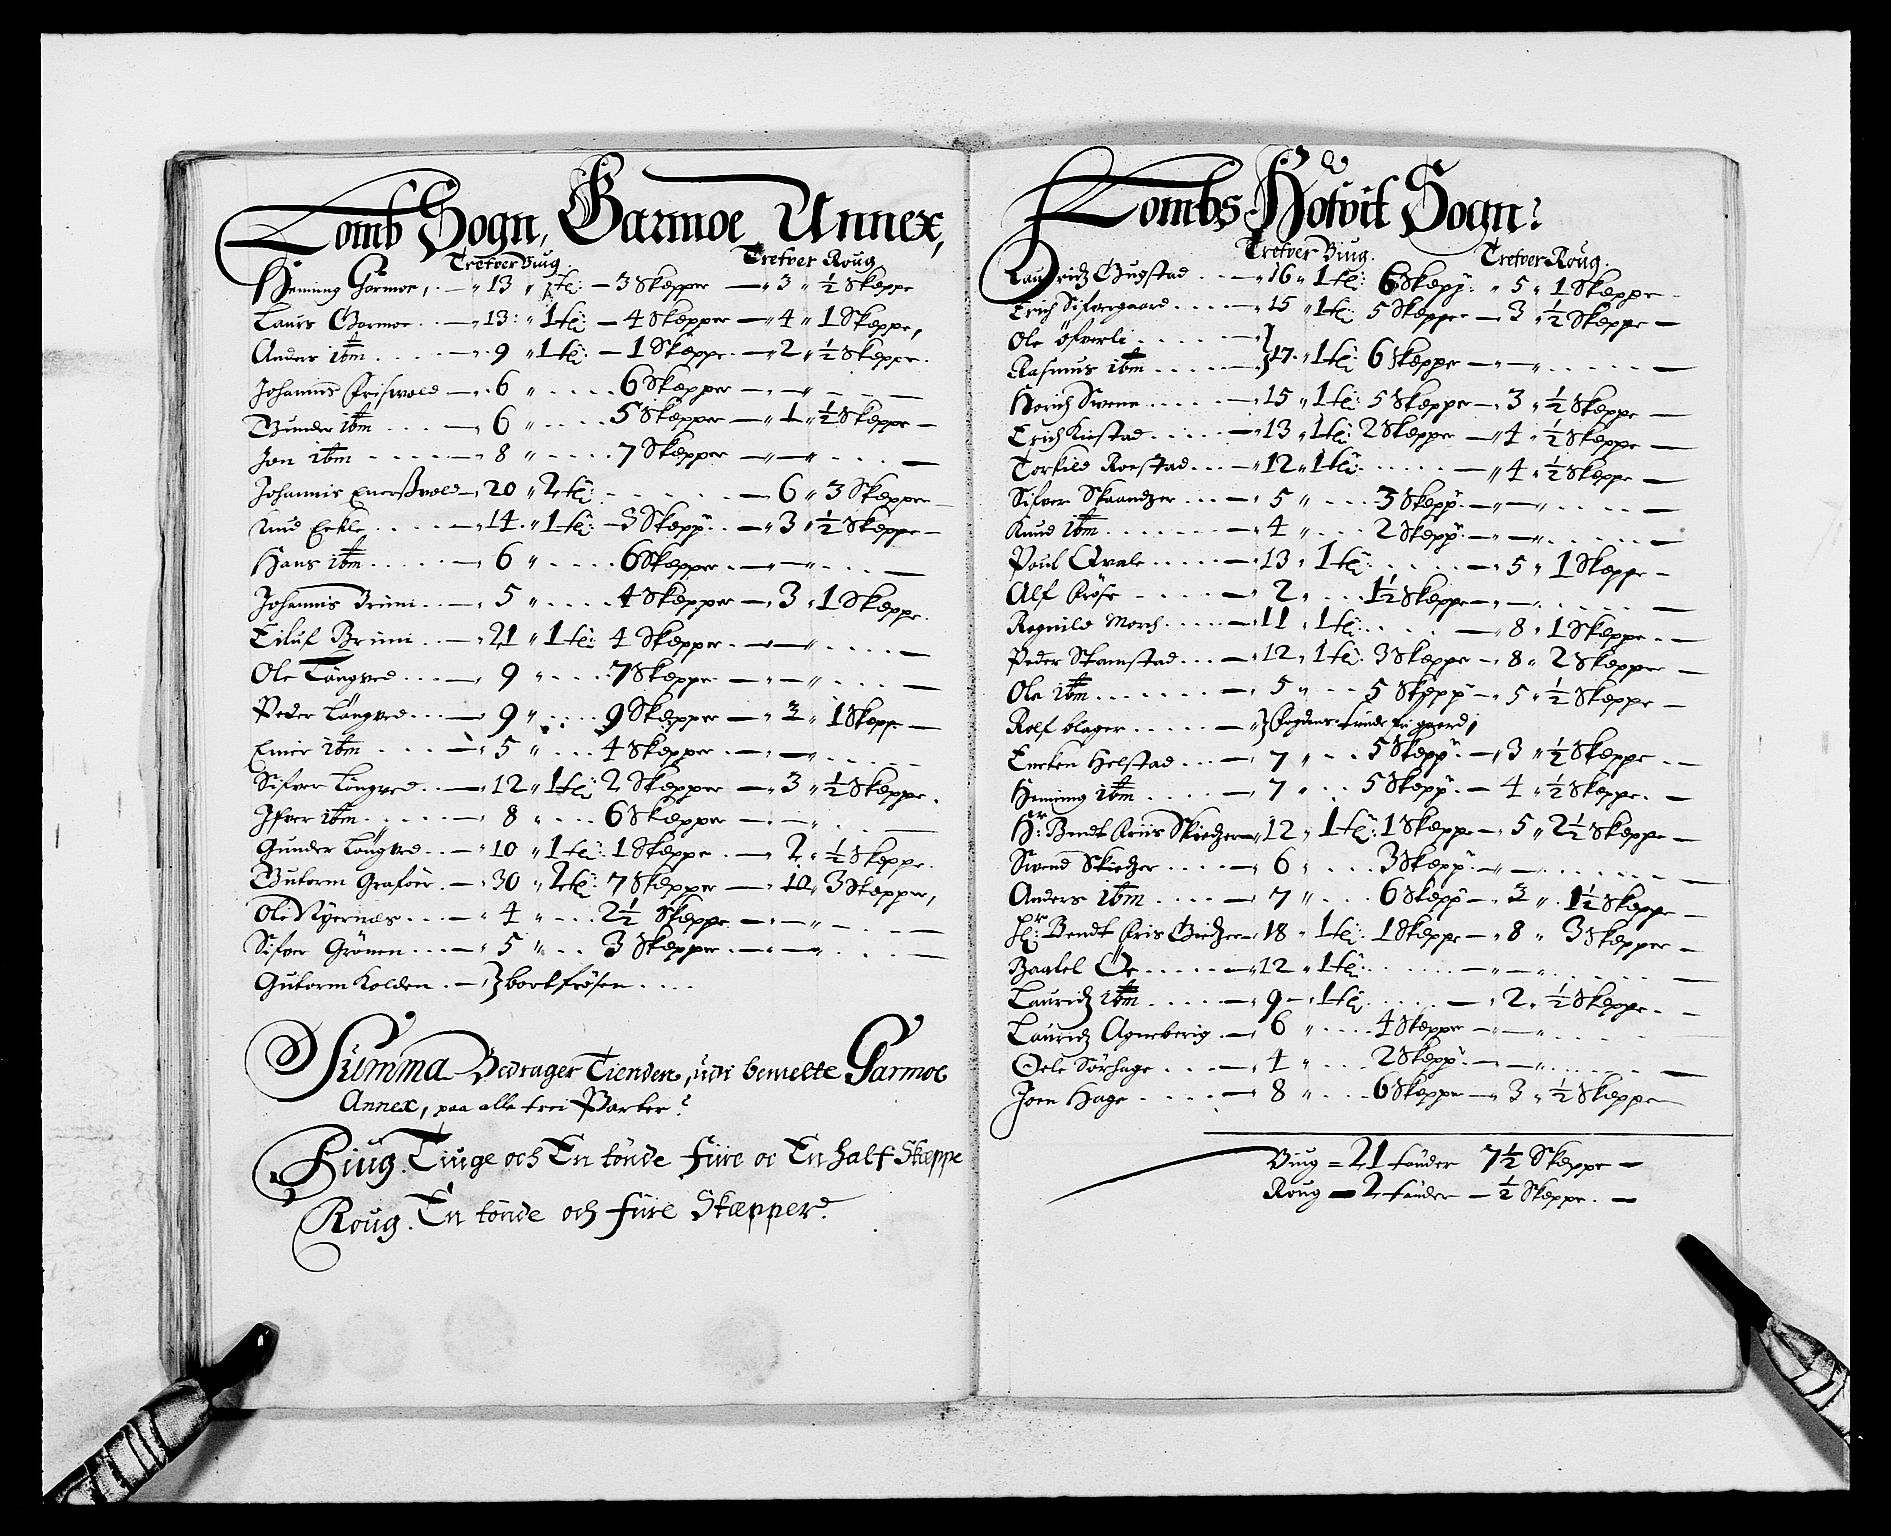 Lomb Sogn, Garmoe Annex,
Trefver Biug. Trefver Roug
Heming Garmoe, . — „ 13 „ 1 tø: — 3 Skepper — „ 3 „ ½ Skeppe
Laurs Garmoe . . — „ 13: „ 1 tø: — 4 Skepper — „ 4 „ 1 Skeppe,
Anders ibm . . . . — „ 9 „ 1 tø: — 1 Skeppe. — „ 2 „ ½ Skeppe.
Johannis — „ 6 „ . . . . 6 Skepper — „ — „ . . . —
Gunder ibm . . . — „ 6 „ . . . . 5 Skepper — „ 1 „ ½ Skeppe —
Jon ibm . . . . . — „ 8 „ . . . . 7 Skepper — „ — „ . . . —
Johannis — „ 20 „ 2 tø: . . . . . — 6 „ 3 Skepper —
Knud . . . . — „ 14. „ 1 tø: — 5 Skepp: . — „ 3 „ ½ Skeppe —
Hans ibm . . . . . — „ 6 „ . . . . 6 Skepper . — „ — „ . . . —
Johannis Brimi . . — „ 5 „ . . . . 4 Skepper — „ 3 „ 1 Skeppe.
Eiluf Brimi . . — „ 21 „ 1 tø: 4 Skepper . — „ — „ . . . —
Ole . . . — „ 9 „ . . . . 7 Skeppe — „ — „ . . . —
Peder . . . — „ 9 „ . . . . 9 Skepper — „ 3 „ 1 Skepp —
Einer ibm . . . — „ 5 „ . . . 4 Skepper — „ — „ . . . . —
Sifver . . — „ 12 „ 1 tø: 2 Skepper — „ 3 „ ½ Skeppe.
Ifver ibm . . . . . — „ 8 „ . . . . 6 Skepper — „ — „ . . . —
Gunder . . — „ 10 „ 1 tø: 1 Skeppe . — „ 2 „ ½ Skeppe.
Gutorm Grafver . — „ 30 „ 2 tø: 7 Skepper — „ 10 „ 3 Skepper,
Ole Nyernæs . . . — „ 4 „ . . . 2½ Skeppe — „ — „ . . . —
Sifver Grönen . . . — „ 5 „ . . . 3 Skepper . — „ — „ . . . —
Gutorm Kolden . — „ } bortfrösen . . . .
Summa Bedrager Tienden, udi bemelte Garmoe
Annex, paa alle trei Parter?
Biug. Tiuge och En tönde fiire oc En half Skeppe
Roug. En tönde och fiire Skæpper.
Lombs Hofvit Sogn?
Trefver Biug. Trefver Roug.
Lauridz Gugstad . . — „ 16 „ 1 tø: 6 Skepp: „ 5 „ 1 Skeppe —
Erich Sifvregaard . . . — „ 15 „ 1 tø: 5 Skepper — 3 „ ½ Skeppe —
Ole öfverli . . . . . . — }
Rasmus ibm . . . . . — } 17. „ 1 tø: 6 Skeppe — „ — „ . . . . —
Horich Svene . . . . — „ 15 „ 1 tø: 5 Skepper — „ 3 „ ½ Skeppe —
Erich . . . . . — „ 13 „ 1 tø: 2 Skepper — „ 4 „ ½ Skeppe —
Torkild Roestad . . . — „ 12 „ 1 tø: . . . . . — „ 4 „ ½ Skeppe —
Sifver . . . — „ 5 „ . . . 3 Skepp: — „ — „ . . . . —
Knud ibm . . . . . . . — „ 4 „ . . . 2 Skepp: — „ — „ . . . . —
Poul Qvale . . . . . — „ 13 „ 1 tø: . . . . — „ 5 „ 1 Skeppe —
Alf . . . . . — „ 2 „ . . . 1½ Skeppe — „ — „ . . . . —
Regnild Morch . . . . . — „ 11 „ 1 tø: . . . . — „ 8 „ 1 Skeppe . . —
Peder Stamstad . . . — „ 12 „ 1 tø: 3 Skeppe — „ 8 „ 2 Skepper —
Ole ibm . . . . . . . — „ 5 „ . . . 5 Skepp: — „ 5 „ ½ Skeppe —
Rolf blager . . . . . — „ }
. . . — „ 7 „ . . . 5 Skepp: — „ 3 „ ½ Skeppe . —
Heming ibm . . . . — „ 7 „ . . . 5 Skepp: . — 4 „ ½ Skeppe. —
Hr: Bendt Friis — „ 12 „ 1 tø: 1 Skeppe — „ 5 „ 2½ Skeppe —
Svend . . . . — „ 6 „ . . . . 3 Skepp: „ — „ . . . . —
Anders ibm . . . . — „ 7 „ . . . 6 Skepp: — „ 3 „ 1½ Skeppe —
Hr: Bendt Friis — „ 18 „ 1 tø: 1 Skeppe — „ 8 „ 3 Skepper —
. . . . . — „ 12 „ 1 tø: . . . . . — „ — „ . . . . —
Lauridz ibm . . . . . — „ 9 — „ 1 tø: . . . . . — „ 2 „ ½ Skeppe . —
Lauridz Agneberig . — „ 6 „ . . . . 4 Skepper — „ — „ . . . .
Oele Sörhage . . . — „ 4 „ . . . . 2 Skepp: — „ — „ . . . . —
Joen Hage . . . . . — „ 8 „ . . . . 6 Skeppe — „ 3 „ ½ Skeppe —
Biug = 21 tönder 7½ Skeppe —
Roug — 2 tönder — ½ Skeppe . —